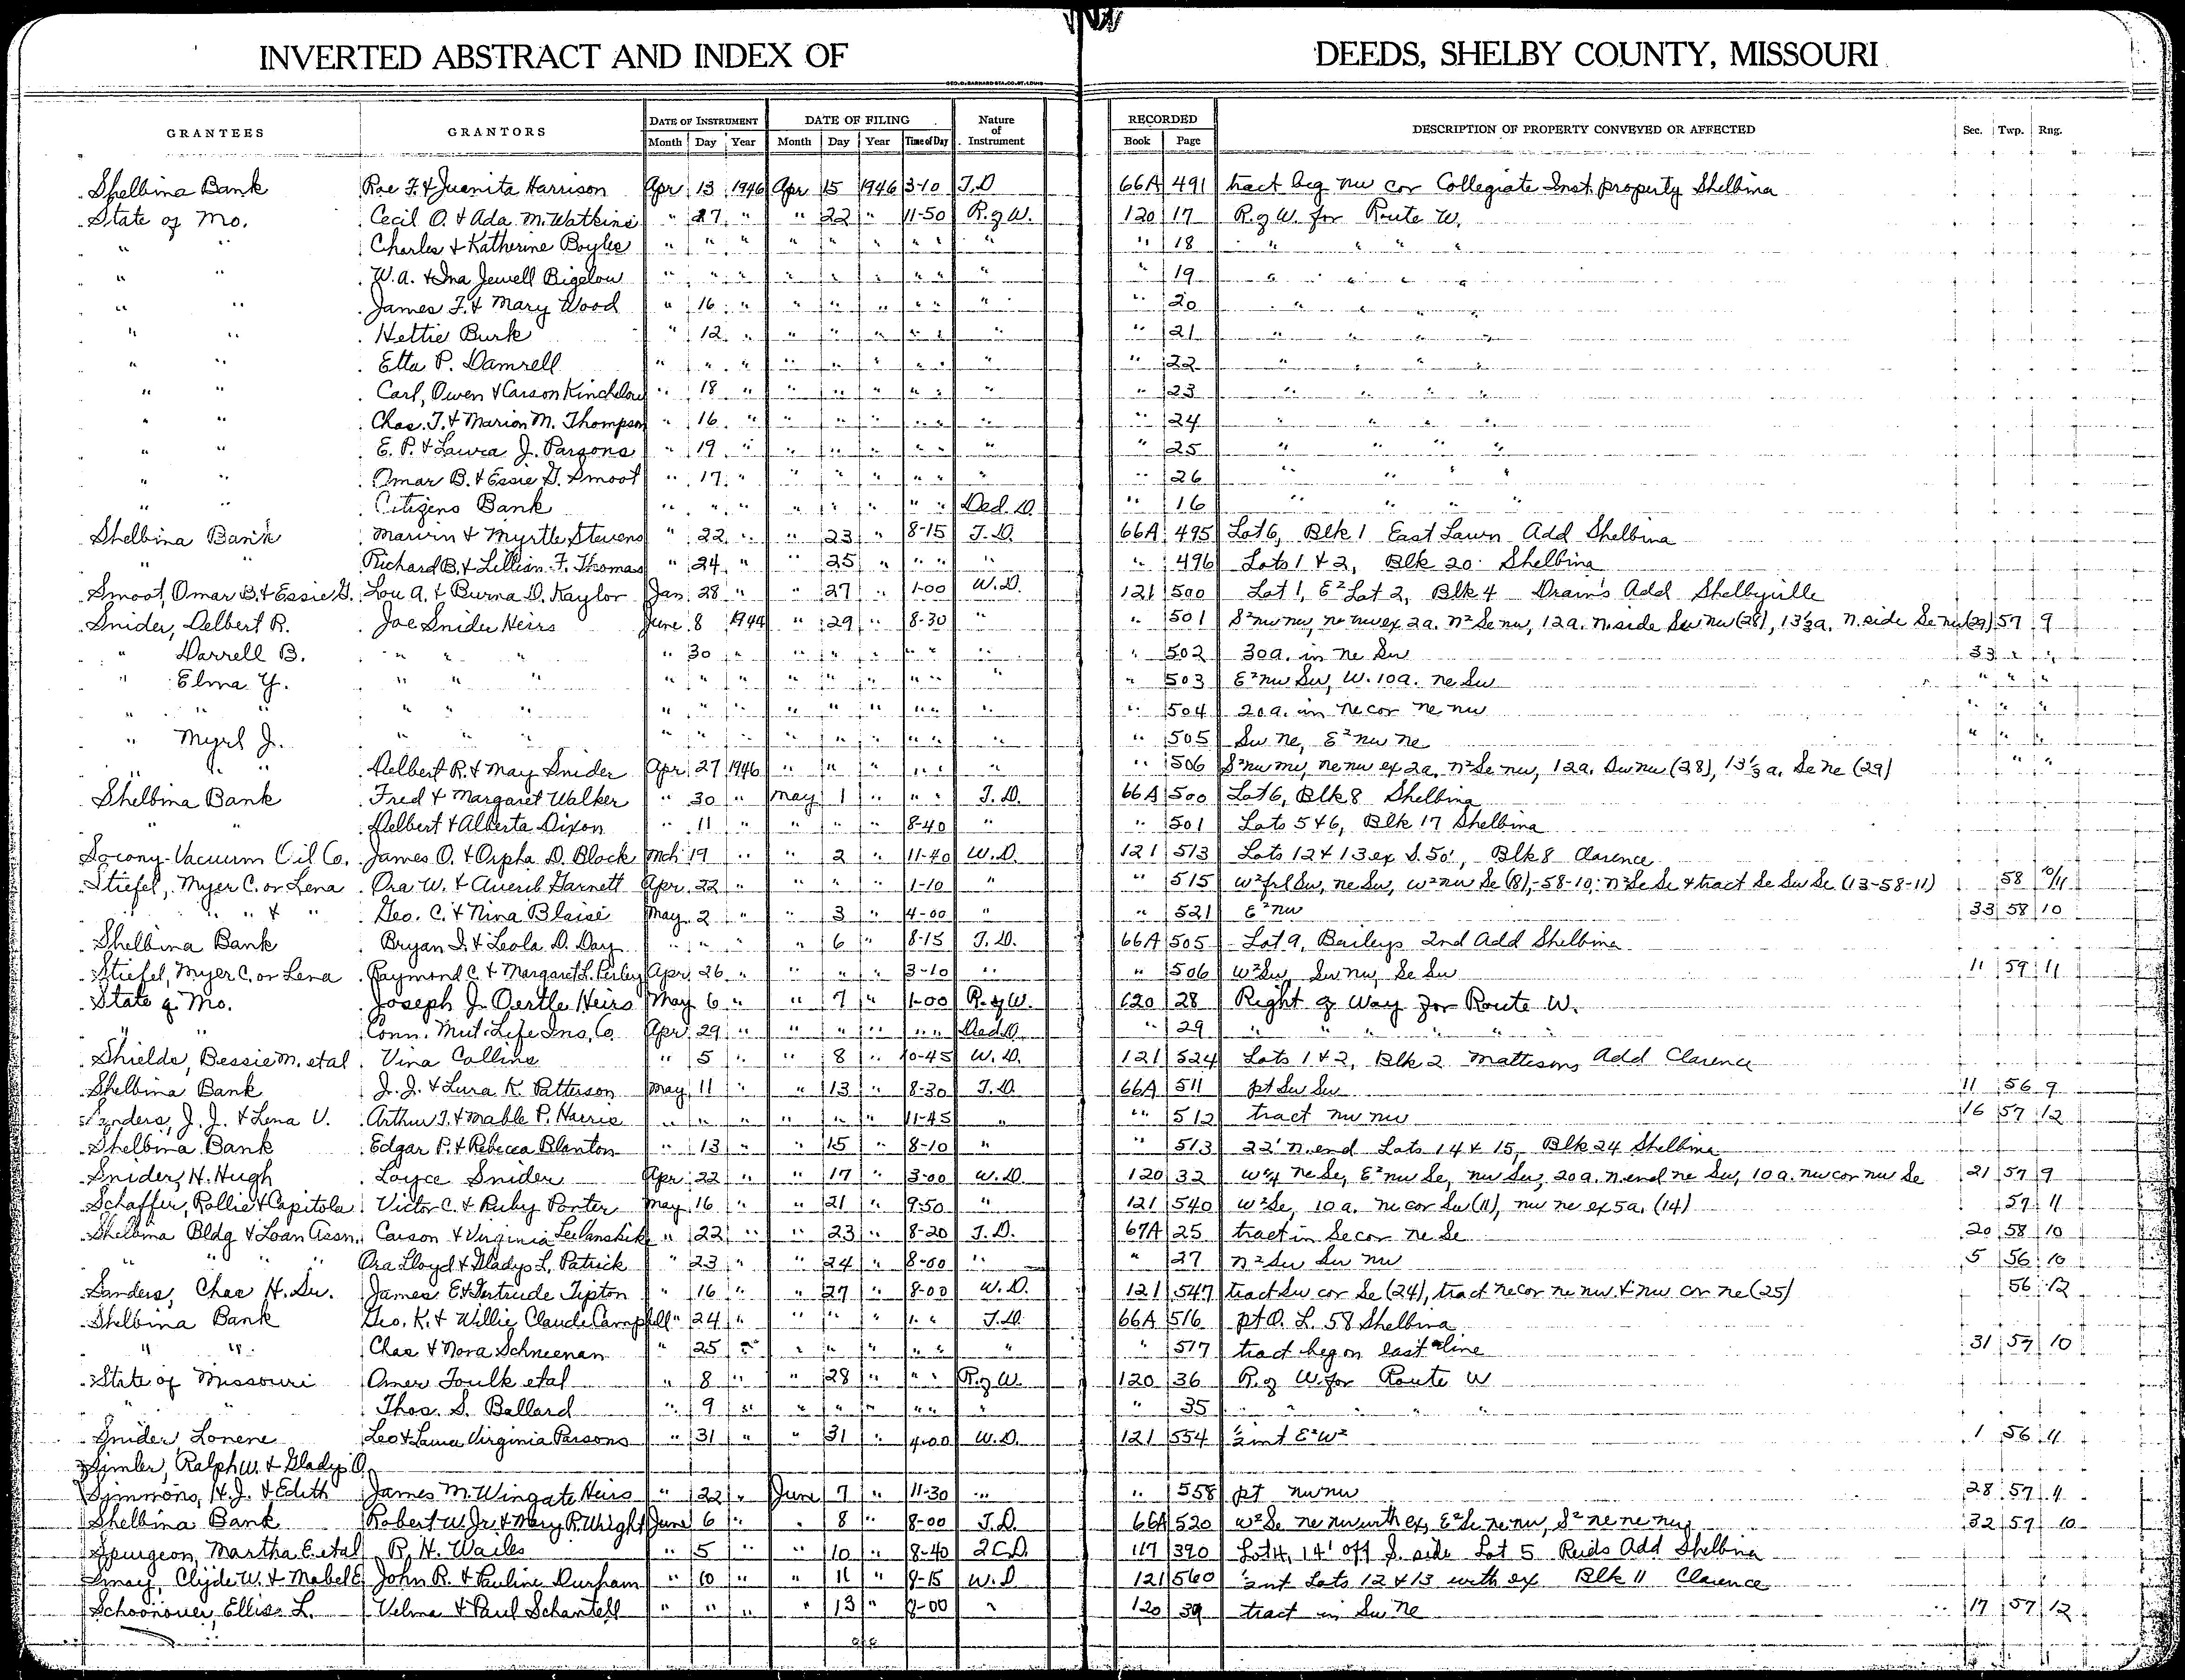 INVERTED ABSTRACT AND INDEX OF DEEDS, SHELBY COUNTY, MISSOURI
GEO. D. BARNARD STA. CO. ST. LOUIS
GRANTEES GRANTORS DATE OF INSTRUMENT DATE OF FILING Nature of Instrument RECORDED DESCRIPTION OF PROPERTY CONVEYED OR AFFECTED Sec. Twp. Rng.
Month Day Year Month Day Year Time of Day Book Page
Shelbina Bank Roe F. & Juanita Harrison Apr 13 1946 Apr 15 1946 3-10 T.D 66A 491 tract beg nw cor Collegiate Inst. property Shelbina
State of Mo. Cecil O. & Ada M. Watkins " 27 " " 22 " 11-50 R. of W. 120 17 R. of W. for Route W.
" " Charles & Katherine Boyles " " " " " " " " " " 18 " " " "
" " W.A. & Ina Jewell Bigelow " " " " " " " " " " 19 " " " "
" " James F. & Mary Wood " 16 " " " " " " " " 20 " " " "
" " Nettie Burk " 12 " " " " " " " " 21 " " " "
" " Etta P. Damrell " " " " " " " " " " 22 " " "
" " Carl, Owen & Carson Kincheloe " 18 " " " " " " " " 23 " " " "
" " Chas. T. & Marion M. Thompson " 16 " " " " " " " " 24 " " " "
" " E. P. & Laura J. Parsons " 19 " " " " " " " " 25 " " " "
" " Omar B. & Essie G. Smoot " 17 " " " " " " " " 26 " " " "
" " Citizens Bank " " " " " " " " Ded. D. " 16 " " " "
Shelbina Bank Marvin & Myrtle Stevens " 22 " " 23 " 8-15 T.D. 66A 495 Lot 6, Blk 1 East Lawn Add Shelbina
" " Richard B. & Lillian F. Thomas " 24 " " 25 " " " " " 496 Lots 1 & 2, Blk 20 Shelbina
Smoot, Omar B. & Essie G. Lou A. & Burna D. Kaylor Jan 28 " " 27 " 1-00 W.D. 121 500 Lot 1, E² Lot 2, Blk 4 Drain's Add Shelbyville
Snider, Delbert R. Joe Snider Heirs June 8 1944 " 29 " 8-30 " " 501 S² nw nw, ne nw ex 2a. N² Se nw, 12a. N. side Sw nw (28), 13⅓a. N. side Se ne (29) 57 9
" Darrell B. " " " " 30 " " " " " " " " 502 30a. in ne Sw 33 " "
" Elma Y. " " " " " " " " " " " " " 503 E² nw Sw, W. 10a. ne Sw " " "
" " " " " " " " " " " " " " " " 504 20a. in ne cor ne nw " " "
" Myrl J. " " " " " " " " " " " " " 505 Sw ne, E² nw ne " " "
" " " Delbert R. & May Snider Apr 27 1946 " " " " " " " 506 S² nw nw, ne nw ex 2a. N² Se nw, 12a. Sw nw (28), 13⅓a. Se ne (29) " "
Shelbina Bank Fred & Margaret Walker " 30 " May 1 " " " T.D. 66A 500 Lot 6, Blk 8 Shelbina
" " Delbert & Alberta Dixon " 11 " " " " 8-40 " " 501 Lots 5 & 6, Blk 17 Shelbina
Socony-Vacuum Oil Co. James O. & Orpha D. Block Mch 19 " " 2 " 11-40 W.D. 121 513 Lots 12 & 13 ex S. 50', Blk 8 Clarence
Stiefel, Myer C. or Lena Ora W. & Averil Garnett Apr 22 " " " " 1-10 " " 515 W² frl Sw, ne Sw, W² nw Se (18)-58-10; N² Se Se & tract Se Sw Se (13-58-11) 58 10/11
" " & " Geo. C. & Nina Blaise May 2 " " 3 " 4-00 " " 521 E² nw 33 58 10
Shelbina Bank Bryan I. & Leola D. Day " " " " 6 " 8-15 T.D. 66A 505 Lot 9, Baileys 2nd Add Shelbina
Stiefel, Myer C. or Lena Raymond C. & Margaret L. Perley Apr 26 " " " " 3-10 " " 506 W² Sw, Sw nw, Se Sw 11 59 11
State of Mo. Joseph J. Oertle Heirs May 6 " " 7 " 1-00 R. of W. 120 28 Right of Way for Route W.
" " Conn. Mut. Life Ins. Co. Apr 29 " " " " " " Ded D. " 29 " " " " "
Shields, Bessie M. etal Vina Collins " 5 " " 8 " 10-45 W.D. 121 524 Lots 1 & 2, Blk 2 Mattisons Add Clarence
Shelbina Bank J. J. & Lura K. Patterson May 11 " " 13 " 8-30 T.D. 66A 511 pt Sw Sw 11 56 9
Sanders, J. J. & Lena V. Arthur T. & Mable P. Harris " " " " " " 11-45 " " 512 tract nw nw 16 57 12
Shelbina Bank Edgar P. & Rebecca Blanton " 13 " " 15 " 8-10 " " 513 22' N. end Lots 14 & 15, Blk 24 Shelbina
Snider, H. Hugh Loyce Snider Apr 22 " " 17 " 3-00 W.D. 120 32 ne Se, E² nw Se, nw Sw, 20a. N. end ne Sw, 10a. nw cor nw Se 21 57 9
Schaffer, Rollie & Capitola Victor C. & Ruby Porter May 16 " " 21 " 9-50 " 121 540 W² Se, 10a. ne cor Sw (11), nw ne ex 5a. (14) 59 11
Shelbina Bldg & Loan Assn. Carson & Virginia Lee " 22 " " 23 " 8-20 T.D. 67A 25 tract in Se cor ne Se 20 58 10
" " " Ora Lloyd & Gladys L. Patrick " 23 " " 24 " 8-00 " " 27 N² Sw Sw nw 5 56 10
Sanders, Chas H. Sr. James E. & Gertrude Tipton " 16 " " 27 " 8-00 W.D. 121 547 tract Sw cor Se (24), tract ne cor ne nw & nw cor ne (25) 56 12
Shelbina Bank Geo. K. & Willie Claude Campbell " 24 " " " " " " T.D. 66A 516 pt O. L. 58 Shelbina
" " Chas & Nora Schneenan " 25 " " " " " " " " 517 tract beg on East line 31 57 10
State of Missouri Omer Foulk etal " 8 " " 28 " " " R. of W. 120 36 R. of W. for Route W
" " Thos. S. Ballard " 9 " " " " " " " " 35 " " " "
Snider, Lonene Leo & Laura Virginia Parsons " 31 " " 31 " 4-00 W.D. 121 554 ½ int E² W² 1 56 11
Simler, Ralph W. & Gladys O.
Simmons, H. J. & Edith James M. Wingate Heirs " 22 " June 7 " 11-30 " " 558 pt nw nw 28 57 11
Shelbina Bank Robert W. Jr. & Mary R. Wright June 6 " " 8 " 8-00 T.D. 66A 520 W² Se ne nw with ex, E² Se ne nw, S² ne ne nw 32 57 10
Spurgeon, Martha E. etal R. H. Wailes " 5 " " 10 " 8-40 2 C.D. 117 390 Lot 4, 14' off S. side Lot 5 Reids Add Shelbina
Smay, Clyde W. & Mabel E. John R. & Pauline Durham " 10 " " 11 " 9-15 W.D 121 560 int Lots 12 & 13 with ex Blk 11 Clarence
Schoonover, Ellis L. Velma & Paul Schantell " " " " 13 " 8-00 " 120 39 tract in Sw ne 17 57 12